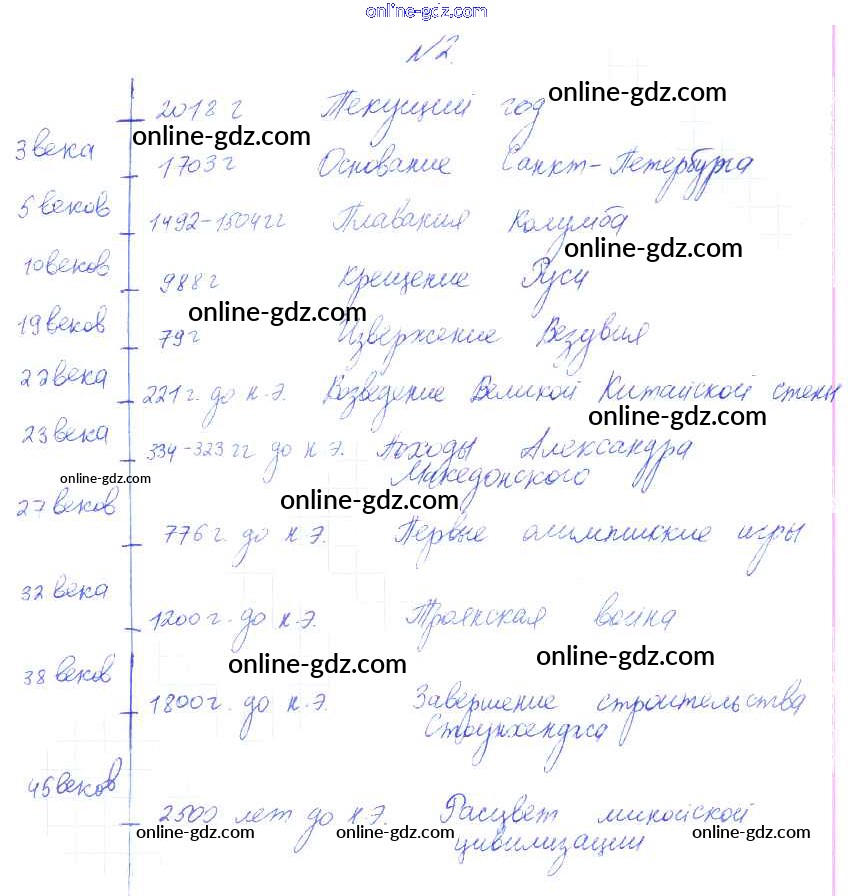 online-gdz.com
№2.
2018 г Текущий год online-gdz.com
3 века online-gdz.com
1703 г Основание Санкт-Петербурга
5 веков
1492-1504 гг Плавания Колумба
online-gdz.com
10 веков
988 г Крещение Руси
online-gdz.com
19 веков
79 г Извержение Везувия
22 века
221 г. до н.э. Возведение Великой Китайской стены
online-gdz.com
23 века
334-323 гг до н.э. Походы Александра
Македонского
online-gdz.com
27 веков online-gdz.com
776 г. до н.э. Первые олимпийские игры
32 века
1200 г. до н.э. Троянская война
online-gdz.com online-gdz.com
38 веков
1800 г. до н.э. Завершение строительства
Стоунхенджа
45 веков
2500 лет до н.э. Расцвет минойской
online-gdz.com online-gdz.com online-gdz.com
цивилизации